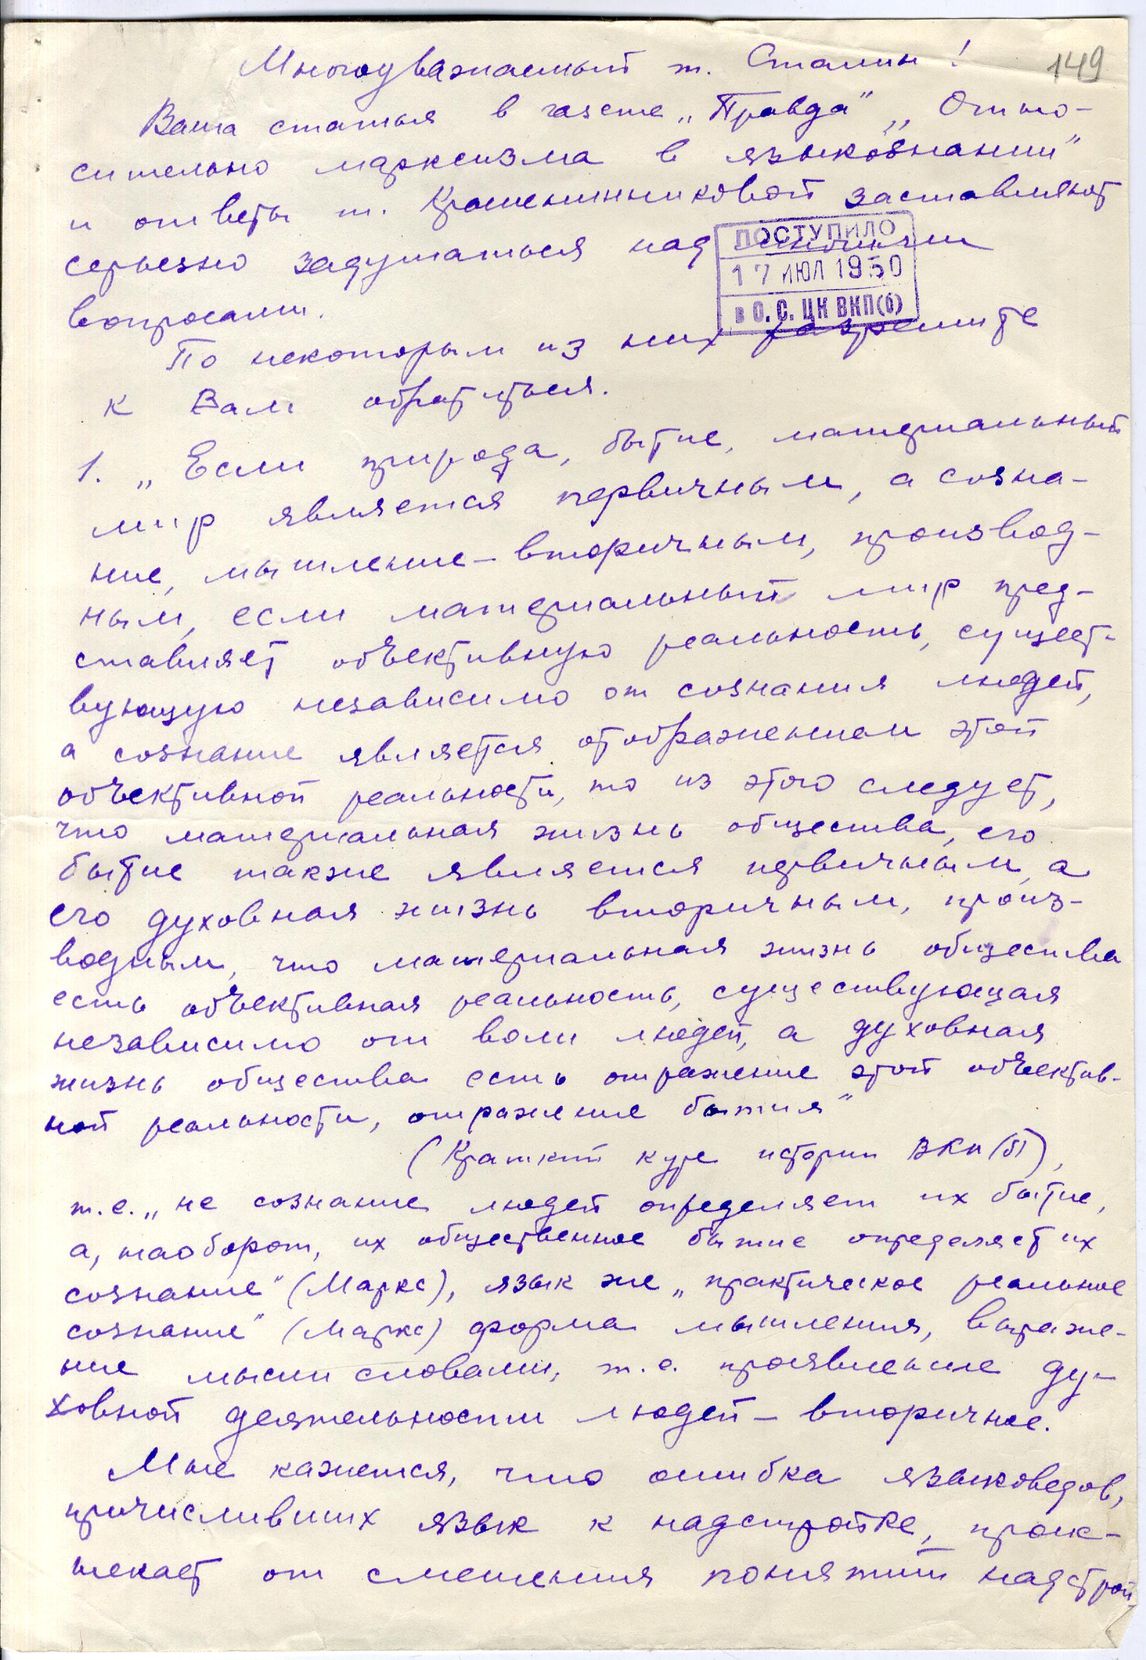 149
Многоуважаемый т. Сталин!
Ваша статья в газете „Правда" „Отно-
сительно марксизма в языкознании"
и ответы т. Крашенинниковой заставляют
серьезно задуматься над многими
вопросами.
ПОСТУПИЛО
17 ИЮЛ 1950
в О.С. ЦК ВКП(б)
По некоторым из них разрешите
к Вам обратиться.
1. „Если природа, бытие, материальный
мир является первичным, а созна-
ние, мышление – вторичным, производ-
ным, если материальный мир пред-
ставляет объективную реальность, сущест-
вующую независимо от сознания людей,
а сознание является отображением этой
объективной реальности, то из этого следует,
что материальная жизнь общества, его
бытие также является первичным, а
его духовная жизнь вторичным, произ-
водным, что материальная жизнь общества
есть объективная реальность, существующая
независимо от воли людей, а духовная
жизнь общества есть отражение этой объектив-
ной реальности, отражение бытия"
(Краткий курс истории ВКП(б)),
т.е. „не сознание людей определяет их бытие,
а, наоборот, их общественное бытие определяет их
сознание" (Маркс), язык же „практическое реальное
сознание" (Маркс) форма мышления, выраже-
ние мысли словами, т.е. проявление ду-
ховной деятельности людей – вторичное.
Мне кажется, что ошибка языковедов,
причисливших язык к надстройке, проис-
текает от смешения понятий надстрой-